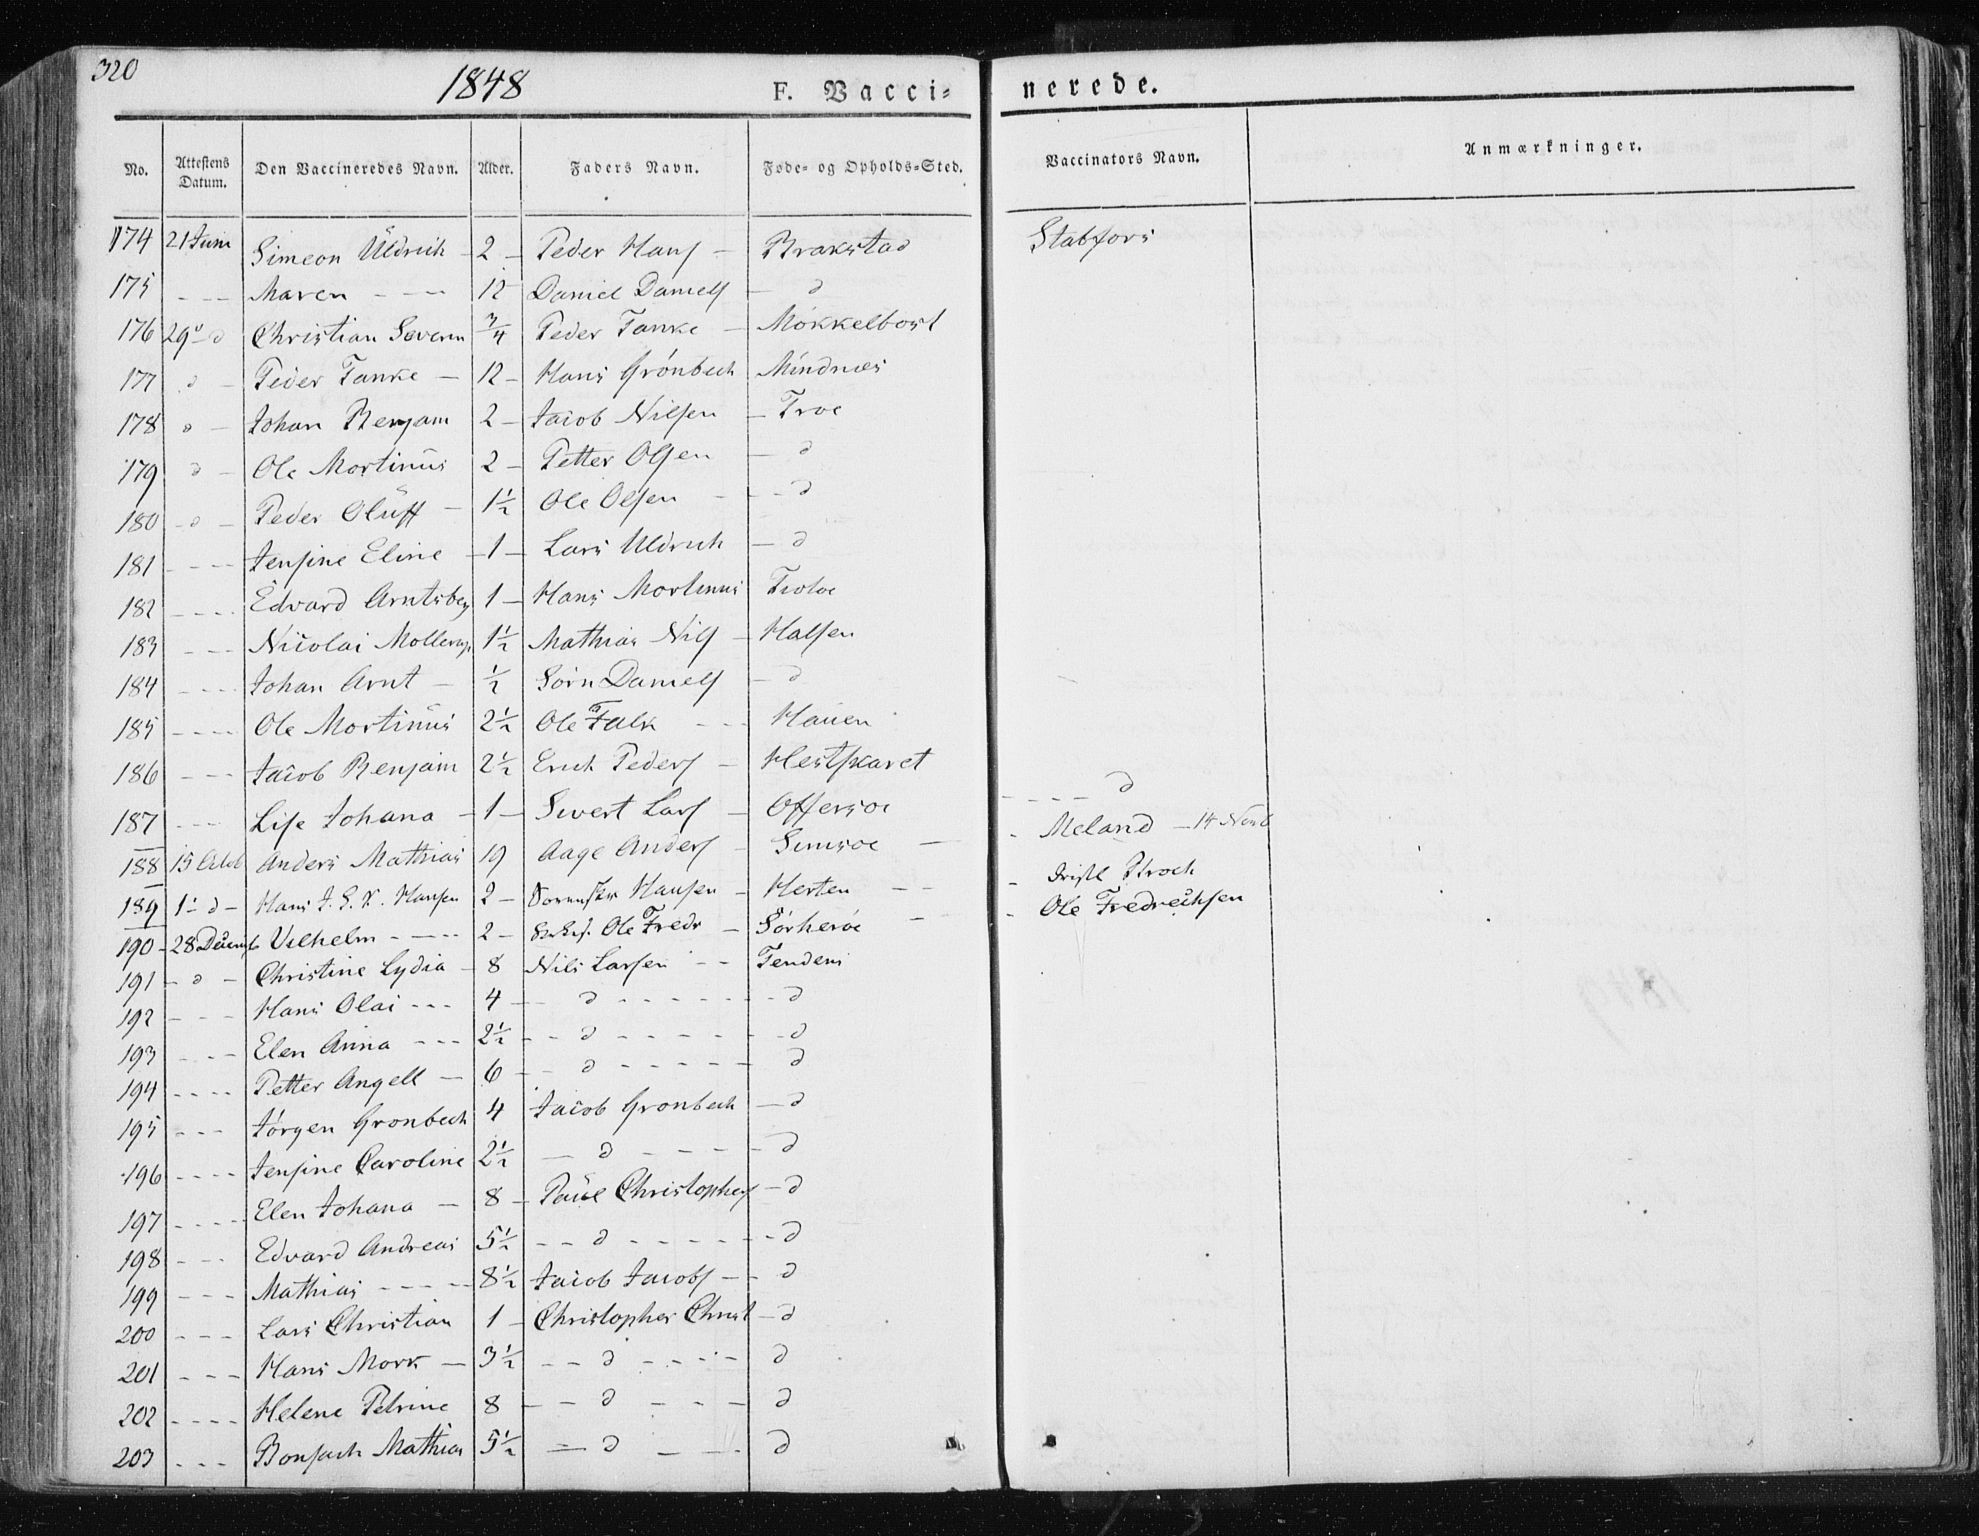 320
1848
F. Vacci=nerede.
No. Attestens Datum. Den Vaccineredes Navn. Alder. Faders Navn. Føde= og Opholds=Sted. Vaccinators Navn. Anmærkninger.
174 21 Juni Simeon Uldrich - 2 - Peder Hans - Brakstad Stabfors
175 - - - Maren - - - 12 Daniel Daniels - d
176 29 - d Christian Severin 3/4 Peder Tanke - Møkkelbost
177 d - Peder Tanke - 12 - Hans Grønbech Mindnes
178 d - Johan Benjam 2 - Jacob Nilsen - Troe
179 d - Ole Mortinus 2 - Petter Olsen - d
180 - d - Peder Oluff - 1 1/2 Ole Olsen - - d
181 - - - - Jensine Eline - 1 - Lars Uldrich - d
182 - - - - Edvard Arntsberg 1 - Hans Mortinus
183 - - - Nicolai Mollerup 1 1/2 Mathias Nils - Halsen
184 - - - - Johan Arnt - 1/2 Sørn Daniels - d
185 - - - - Ole Mortinus 2 1/2 Ole Falk - - - Hauen
186 - - - Jacob Benjam 2 1/2 Erich Peders - Hestskaret - - - - d
187 - - - Lise Johana - 1 - Sivert Lars - Offersøe - Meland - 14 Novb
188 15 Octob Anders Mathias 19 Aage Anders - -
189 1 - d - Hans J. E. K. Hansen 2 - Hansen - Herten - - - Broch
190 - 28 Decemb Vilhelm - - - 2 - Ole Fredr - Sørherøe - - Ole Fredrichsen
191 - d - Christine Lydia - 8 Nils Larsen - - Tendens
192 - - - Hans Olai - - - 4 - - d - - - - - d
193 - - - - Elen Anna - - - 2 1/2 - - d - - - - - d
194 - - - - Petter Angell - 6 - - d - - - - - d
195 - - - Jørgen Grønbech 4 Jacob Grønbech - d
196 - - - - Jensine Caroline 2 1/2 - d - - - - d
197 - - - - Elen Johana - 8 - Paul Christophers - d
198 - - - Edvard Andreas 5 1/2 - - d - - - - - d
199 - - - Mathias - - - - 8 1/2 Jacob Jacobs - - d
200 - - - Lars Christian 1 - Christopher Christ - d
201 - - - Hans Mork - 3 1/2 - - d - - - - d
202 - - - - Helene Petrine 8 - - d - - - d
203 - - - Bonsach Mathias 5 1/2 - d - - - d